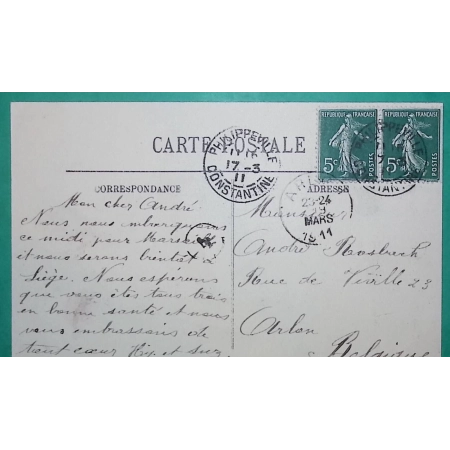 REPUBLIQUE FRANÇAISE
5c
POSTES
REPUBLIQUE FRANÇAISE
5c
POSTES
CARTE POSTALE
PHILIPPEVILLE
17-3
11
CONSTANTINE
PHILIPPEVILLE
CONSTANTINE
CORRESPONDANCE
ADRESSE
23-24
19
MARS
1911
Mon cher André
Nous nous embarquons
ce midi pour Marseille
et nous serons bientôt à
Liége. Nous espérons
que vous êtes tous trois
en bonne santé et nous
vous embrassons de
tout cœur
Monsieur
André
Rue de Viville 23
Arlon
Belgique